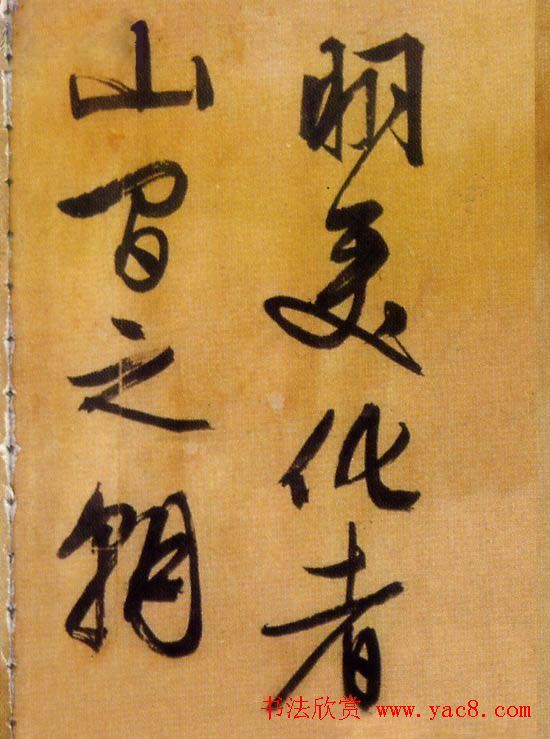 明變化者
山間之朝
书法欣赏 www.yac8.com